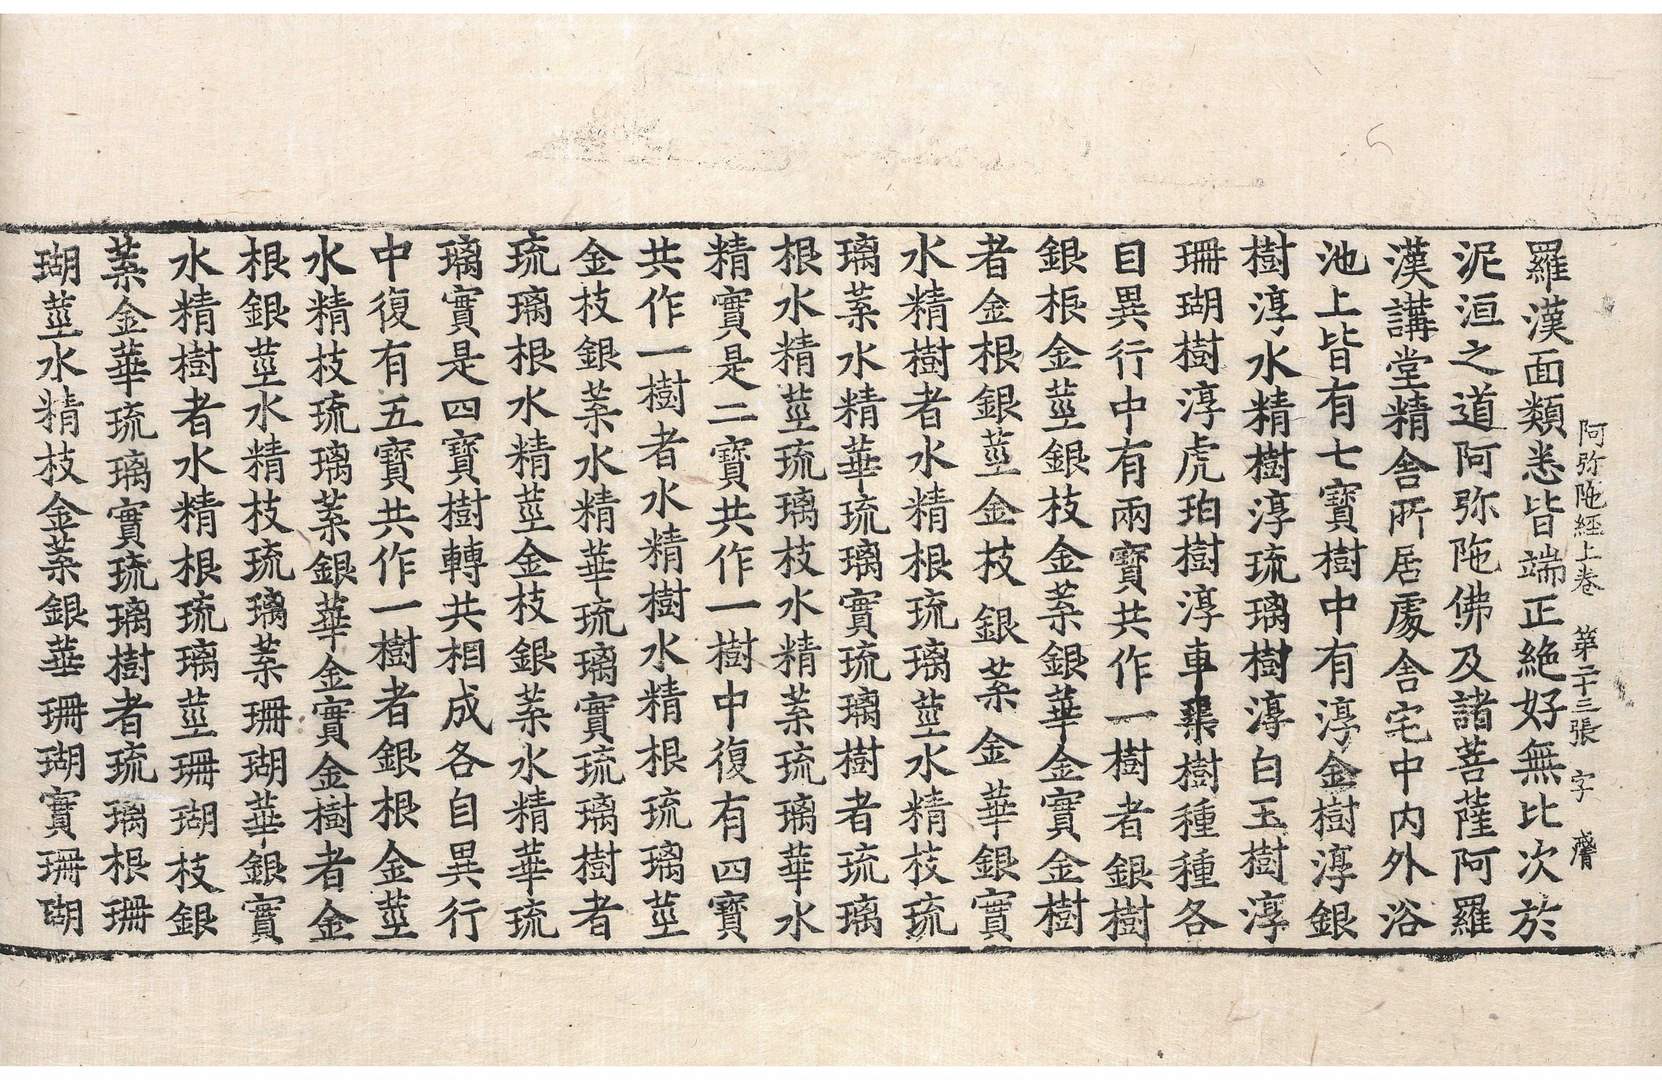 阿弥陁經上卷　第二十三張　字
羅漢面類悉皆端正絶好無比次於
泥洹之道阿弥陁佛及諸菩薩阿羅
漢講堂精舍所居處舍宅中内外浴
池上皆有七寶樹中有淳金樹淳銀
樹淳水精樹淳琉璃樹淳白玉樹淳
珊瑚樹淳虎珀樹淳車璖樹種種各
自異行中有兩寶共作一樹者銀樹
銀根金莖銀枝金葉銀華金實金樹
者金根銀莖金枝銀葉金華銀實
水精樹者水精根琉璃莖水精枝琉
璃葉水精華琉璃實琉璃樹者琉璃
根水精莖琉璃枝水精葉琉璃華水
精實是二寶共作一樹中復有四寶
共作一樹者水精樹水精根琉璃莖
金枝銀葉水精華琉璃實琉璃樹者
琉璃根水精莖金枝銀葉水精華琉
璃實是四寶樹轉共相成各自異行
中復有五寶共作一樹者銀根金莖
水精枝琉璃葉銀華金實金樹者金
根銀莖水精枝琉璃葉珊瑚華銀實
水精樹者水精根琉璃莖珊瑚枝銀
葉金華琉璃實琉璃樹者琉璃根珊
瑚莖水精枝金葉銀華珊瑚實珊瑚